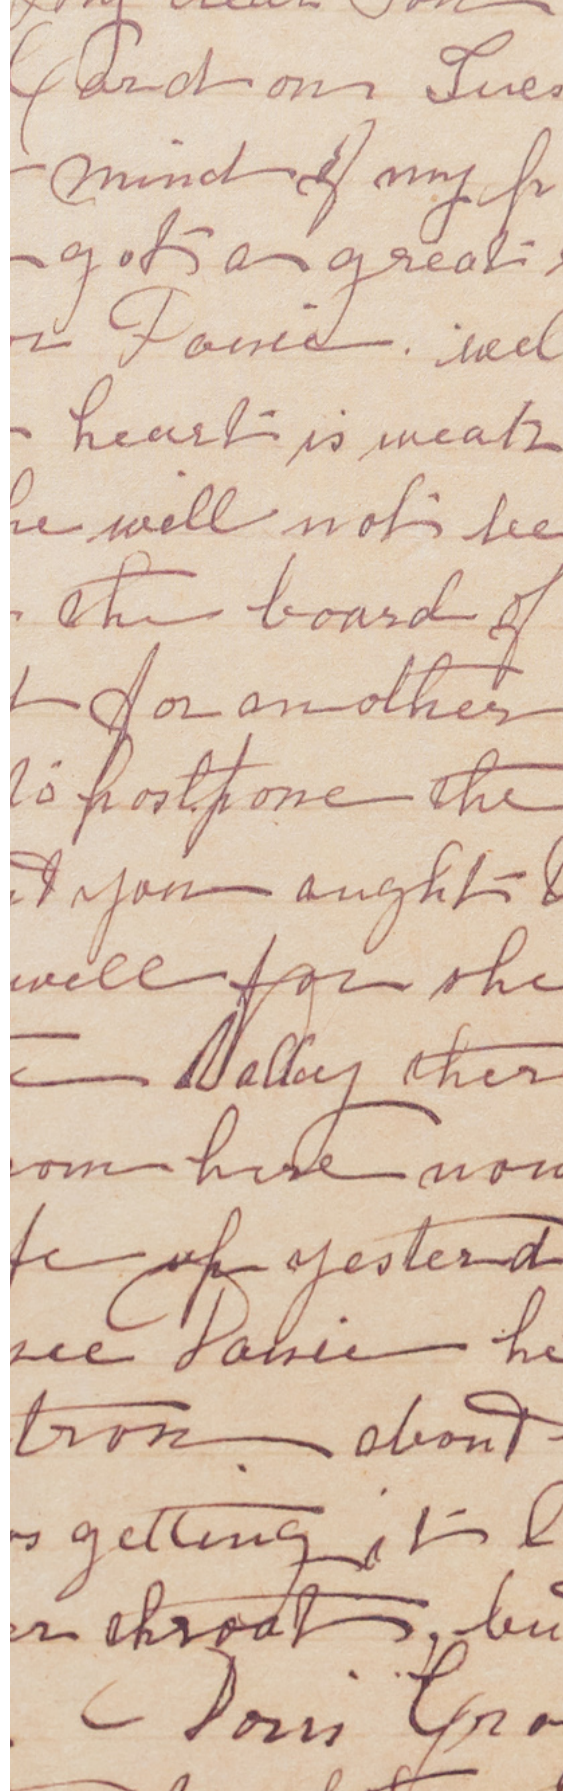 my dear Son
Card on Tues
mind of my fr
got a great
Fannie. wel
heart is weak
he will not be
the board of
for another
to postpone the
you aught t
well for she
Valley ther
here now
up yesterd
see Fannie he
about
getting it b
throat, bu
Doris Gro